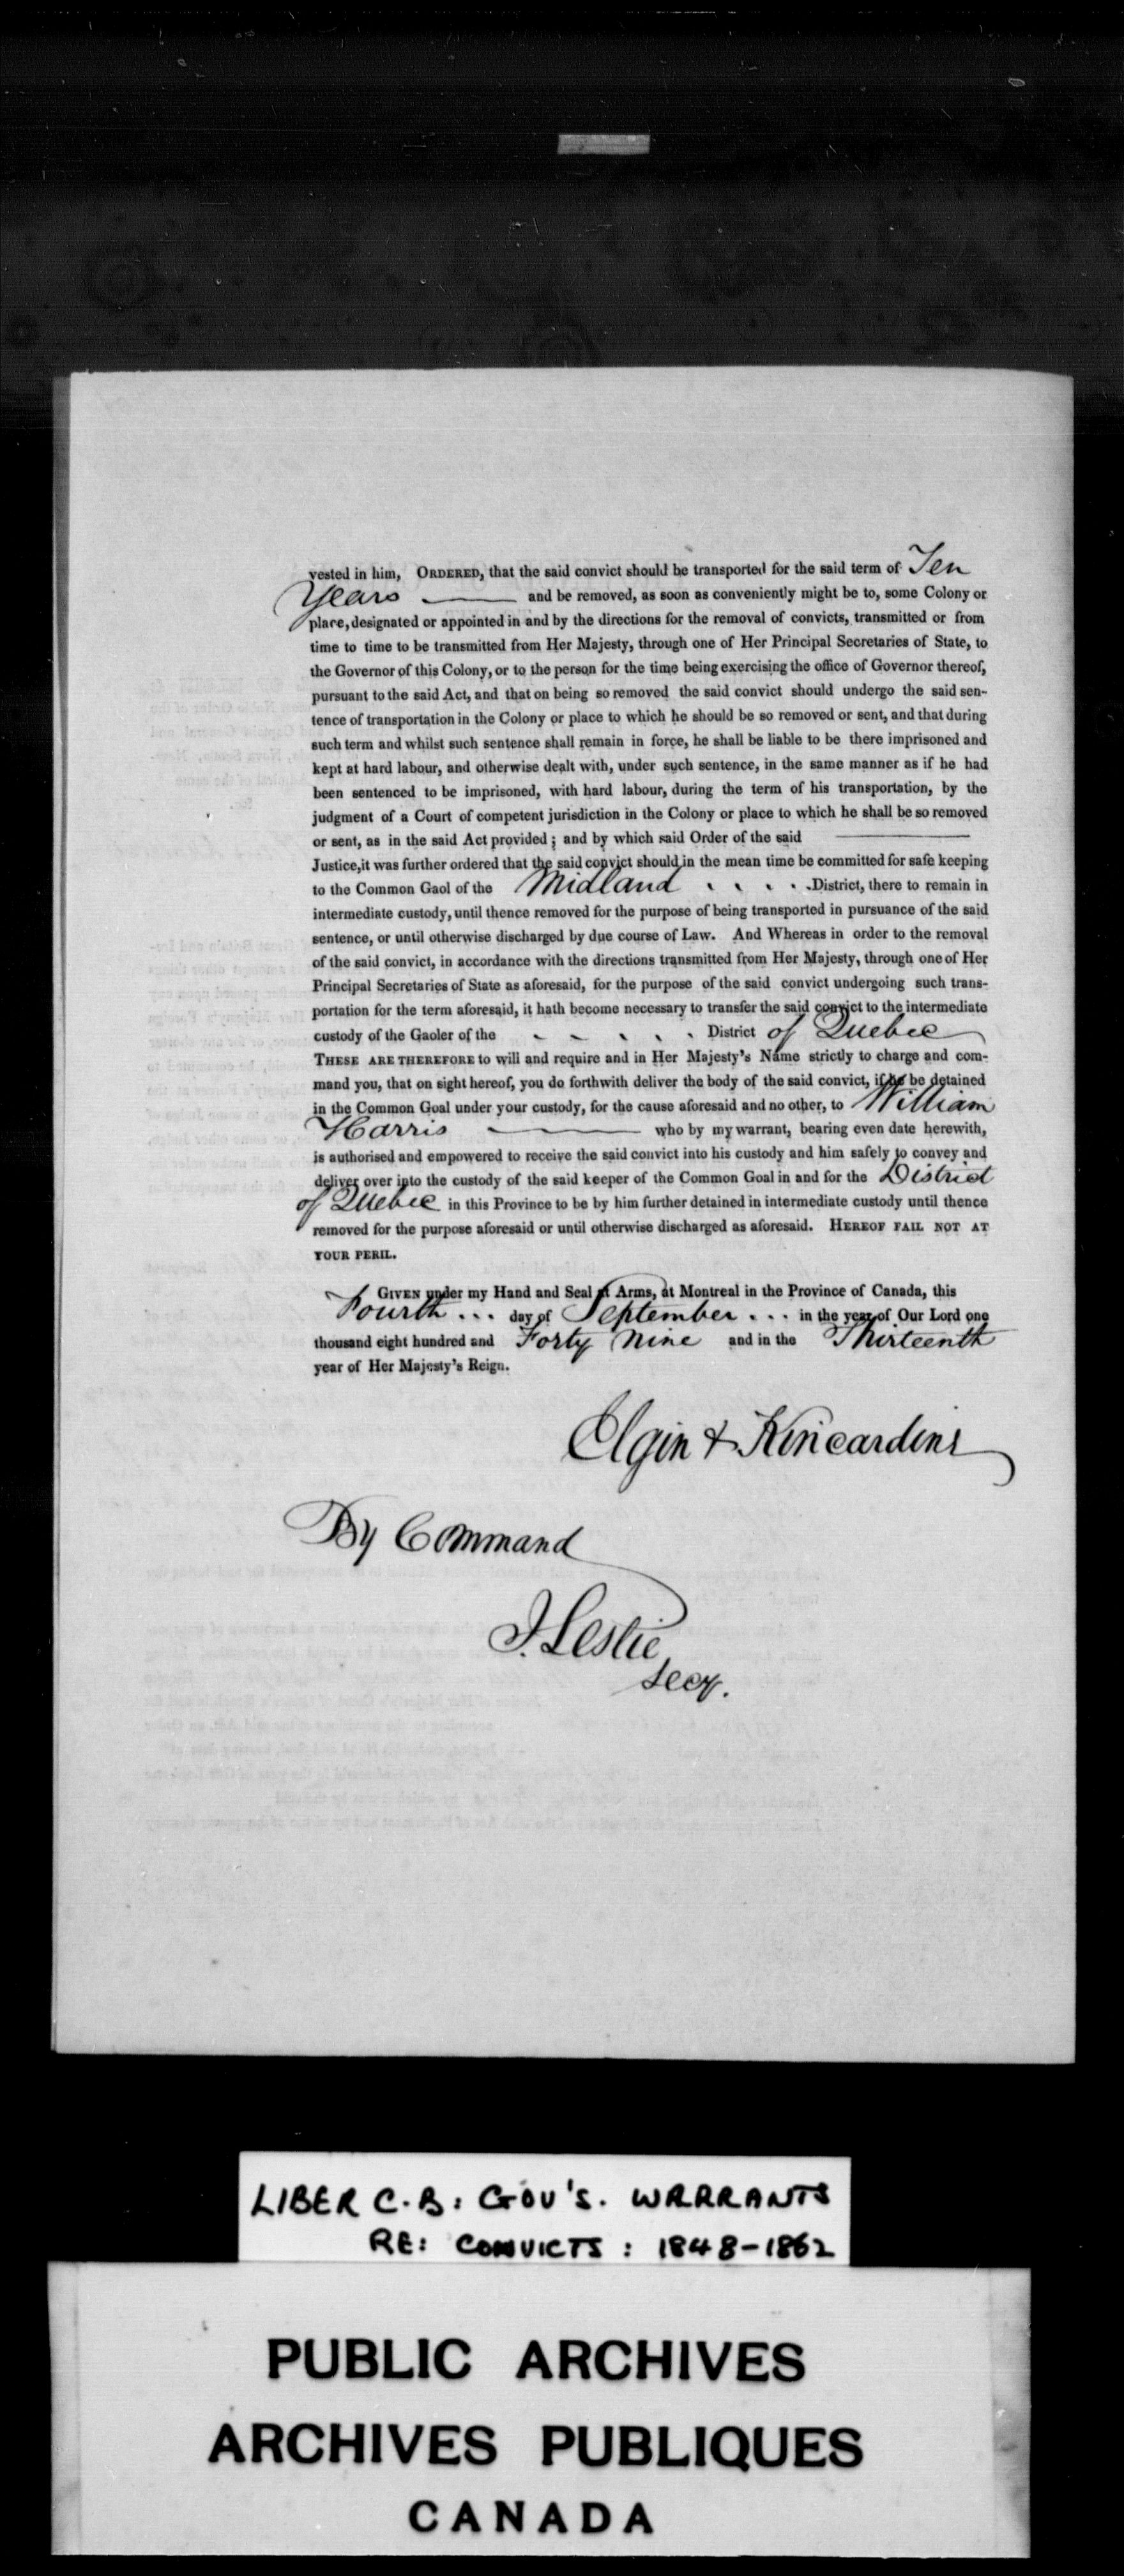 vested in him, ORDERED, that the said convict should be transported for the said term of Ten
Years ——— and be removed, as soon as conveniently might be to, some Colony or
place, designated or appointed in and by the directions for the removal of convicts, transmitted or from
time to time to be transmitted from Her Majesty, through one of Her Principal Secretaries of State, to
the Governor of this Colony, or to the person for the time being exercising the office of Governor thereof,
pursuant to the said Act, and that on being so removed the said convict should undergo the said sen-
tence of transportation in the Colony or place to which he should be so removed or sent, and that during
such term and whilst such sentence shall remain in force, he shall be liable to be there imprisoned and
kept at hard labour, and otherwise dealt with, under such sentence, in the same manner as if he had
been sentenced to be imprisoned, with hard labour, during the term of his transportation, by the
judgment of a Court of competent jurisdiction in the Colony or place to which he shall be so removed
or sent, as in the said Act provided; and by which said Order of the said ———
Justice, it was further ordered that the said convict should in the mean time be committed for safe keeping
to the Common Gaol of the Midland . . . . District, there to remain in
intermediate custody, until thence removed for the purpose of being transported in pursuance of the said
sentence, or until otherwise discharged by due course of Law. And Whereas in order to the removal
of the said convict, in accordance with the directions transmitted from Her Majesty, through one of Her
Principal Secretaries of State as aforesaid, for the purpose of the said convict undergoing such trans-
portation for the term aforesaid, it hath become necessary to transfer the said convict to the intermediate
custody of the Gaoler of the - - - - - District of Quebec
THESE ARE THEREFORE to will and require and in Her Majesty's Name strictly to charge and com-
mand you, that on sight hereof, you do forthwith deliver the body of the said convict, if he be detained
in the Common Goal under your custody, for the cause aforesaid and no other, to William
Harris ——— who by my warrant, bearing even date herewith,
is authorised and empowered to receive the said convict into his custody and him safely to convey and
deliver over into the custody of the said keeper of the Common Goal in and for the District
of Quebec in this Province to be by him further detained in intermediate custody until thence
removed for the purpose aforesaid or until otherwise discharged as aforesaid. HEREOF FAIL NOT AT
YOUR PERIL.
GIVEN under my Hand and Seal at Arms, at Montreal in the Province of Canada, this
Fourth ... day of September ... in the year of Our Lord one
thousand eight hundred and Forty Nine and in the Thirteenth
year of Her Majesty's Reign.
Elgin & Kincardine
By Command
J. Leslie
Secy.
LIBER C.B: GOV'S. WARRANTS
RE: CONVICTS: 1848-1862
PUBLIC ARCHIVES
ARCHIVES PUBLIQUES
CANADA